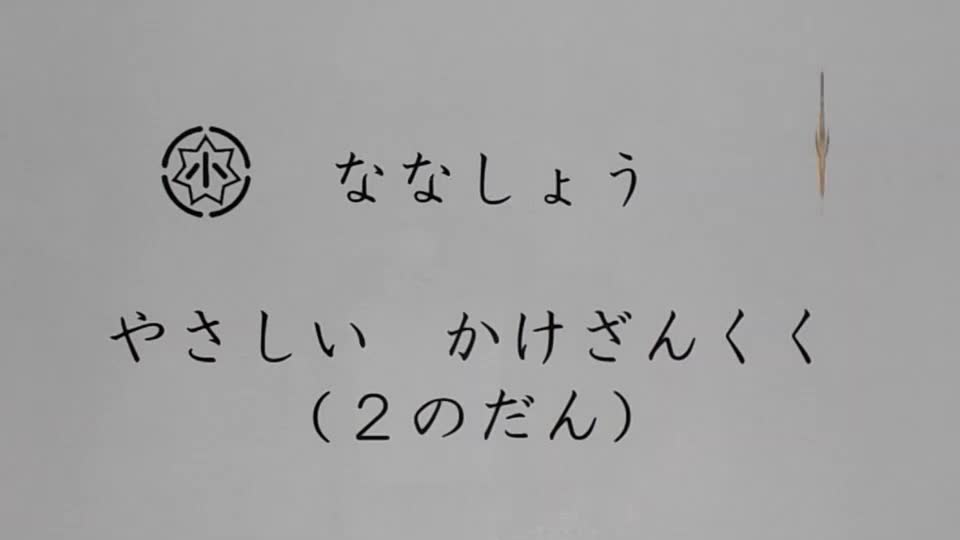 小 ななしょう
やさしい かけざんくく
（２のだん）